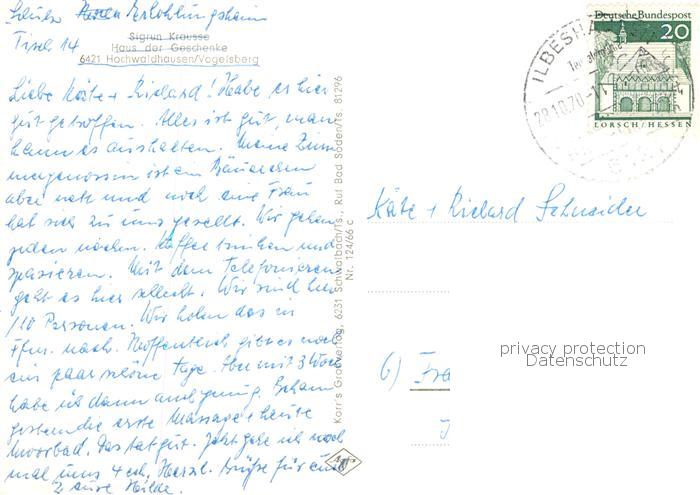 Erholungsheim
Tisch 14
Sigrun Krausse
Haus der Geschenke
6421 Hochwaldhausen/Vogelsberg
Liebe Käte + Richard! Habe es hier
gut getroffen. Alles ist gut, man
kann es aushalten. Meine Zim
mergenossin ist ein Bäuerchen
aber nett und noch eine Frau
hat sich zu uns gesellt. Wir gehen
jeden nachm. Kaffee trinken und
spazieren. Mit dem Telefonieren
geht es hier schlecht. Wir sind hier
110 Personen. Wir holen das in
Ffm. nach. Hoffentlich gibt es noch
ein paar schöne Tage. Eben mit 3 Wochen
habe ich dann auch genug. Bekam
gestern die erste Massage + heute
Moorbad. Das tat gut. Jetzt gehe ich noch
mal ums + ech. Herzl. Grüße für euch
2 Eure Hilde.
Korr's Großverlag, 6231 Schwalbach/Ts., Ruf Bad Soden/Ts 81296
Nr. 124/66 c
Deutsche Bundespost
20
LORSCH/HESSEN
ILBESHA
28.10.70-11
Käte + Richard Schneider
privacy protection
Datenschutz
6) Fra